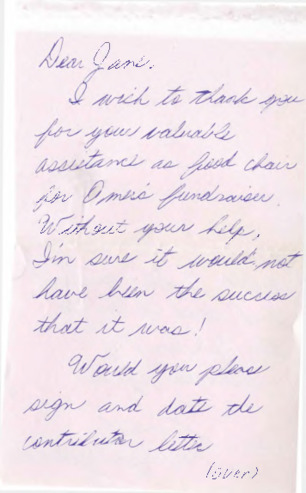 Dear Jane.
I wish to thank you
for you valuable
assistance as food chair
for Omer's fundraiser.
Without your help,
I'm sure it would not
have been the success
that it was!
Would you please
sign and date the
contributor letter
(over)